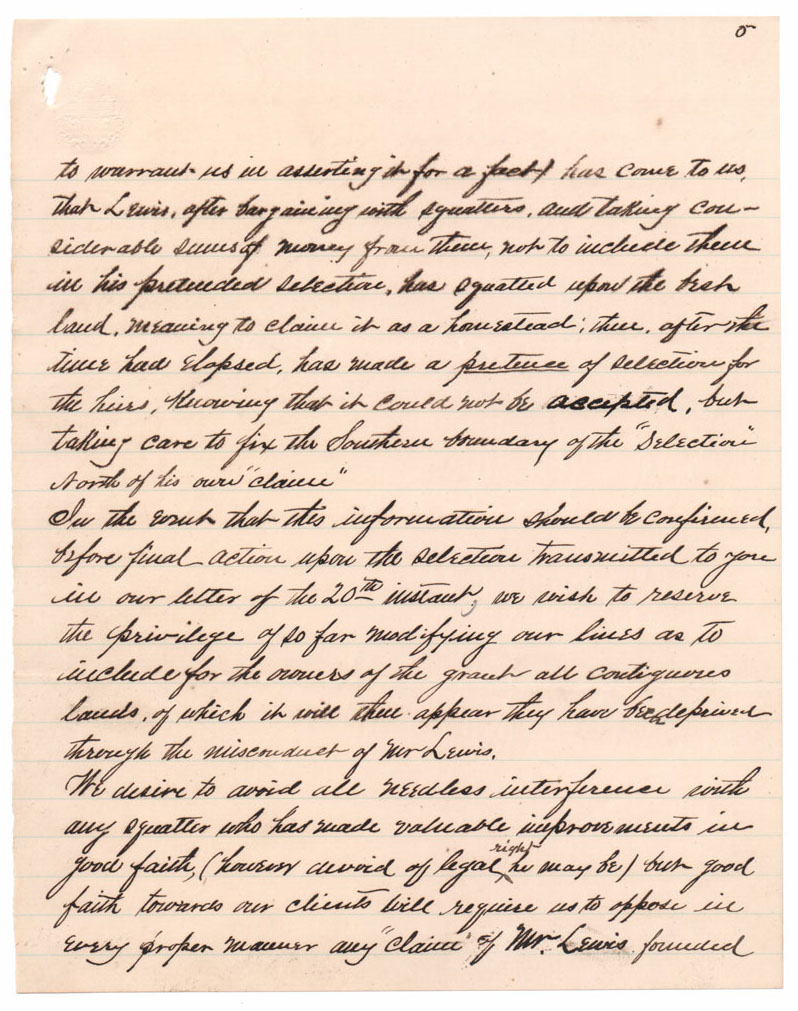 5
to warrant us in asserting it for a fact) has come to us,
that Lewis, after bargaining with squatters, and taking con-
siderable sums of money from them, not to include them
in his pretended selection, has squatted upon the best
land, meaning to claim it as a homestead; then, after the
time had elapsed, has made a pretence of selection for
the heirs, knowing that it could not be accepted, but
taking care to fix the Southern boundary of the "Selection"
North of his own "claim"
In the event that this information should be confirmed,
before final action upon the selection transmitted to you
in our letter of the 20th instant, we wish to reserve
the privilege of so far modifying our lines as to
include for the owners of the grant all contiguous
lands, of which it will then appear they have been deprived
through the misconduct of Mr Lewis.
We desire to avoid all needless interference with
any squatter who has made valuable improvements in
good faith, (however devoid of legal right he may be) but good
faith towards our clients will require us to oppose in
every proper manner any "claim" of Mr. Lewis founded